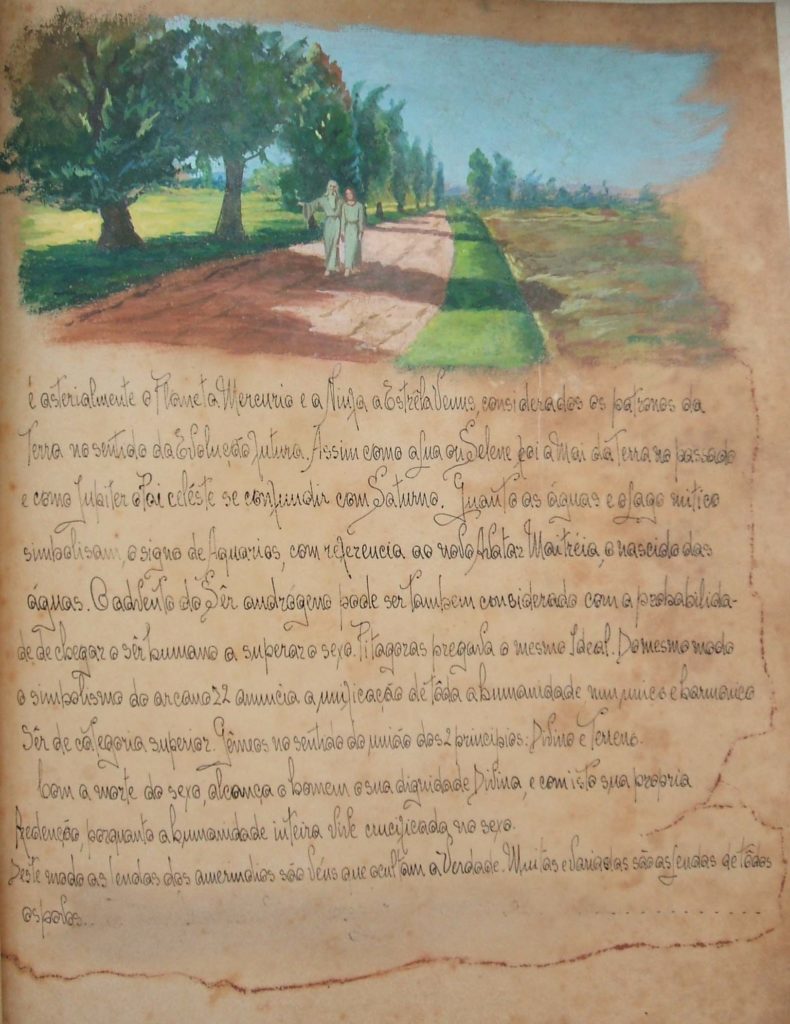 é asterialmente o Planeta Mercurio e a Ninfa a Estrêla Venus, considerados os patronos da
Terra no sentido da Evolução futura. Assim como a Lua ou Selene foi a Mai da Terra no passado
e como Jupiter o Pai celéste se confundir com Saturno. Quanto as águas e o lago mitico
simbolisam, o signo de Aquarios, com referencia ao novo Avatar Maitréia, o nascido das
águas. O advento do Sêr andrógeno pode ser tambem considerado com a probabilida-
de de chegar o sêr humano a superar o sexo. Pitagoras pregava o mesmo Ideal. Do mesmo modo
o simbolismo do arcano 22 anuncia a unificação de tôda a humanidade num, unico e harmonico
Sêr de categoria superior. Gêmeos no sentido da união dos 2 principios: Divino e Terreno.
Com a morte do sexo, alcança o homem o sua dignidade Divina, e com isto sua propria
Redenção, porquanto a humanidade inteira vive crucificada no sexo.
Deste modo as lendas dos amerindios são Véus que ocultam a Verdade. Muitas e variadas são as lendas de tôdos
os povos...